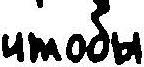 чтобы